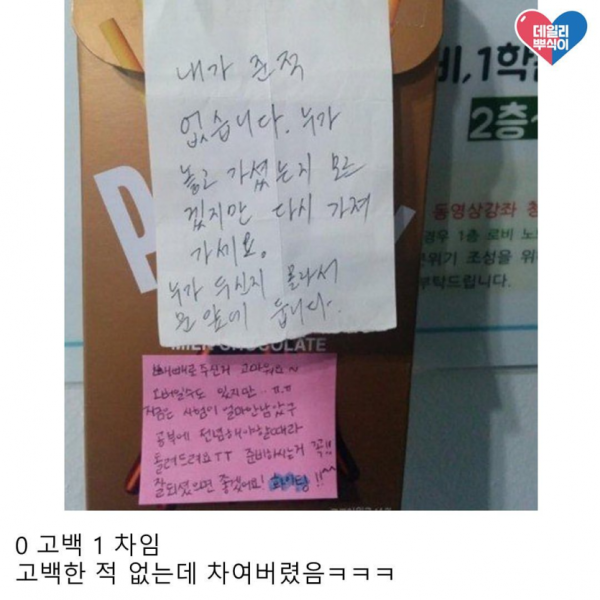 데일리
뿌식이
내가 준적
없습니다. 누가
놓고 가셨는지 모르
겠지만 다시 가져
가세요.
누가 두신지 몰라서
문 앞에 둡니다.
비, 1학
2층
동영상강좌
경우 1층 로비
분위기 조성을 위
부탁드립니다.
MILK CHOCOLATE
빼빼로 주신거 고마워요~
오버일수도 있지만.. ㅠ.ㅠ
지금은 시험이 얼마안남았구
공부에 전념해야할때라
돌려드려요ㅜㅜ 준비하시는거 꼭!!
잘되셨으면 좋겠어요! 화이팅!!
0 고백 1 차임
고백한 적 없는데 차여버렸음ㅋㅋㅋ